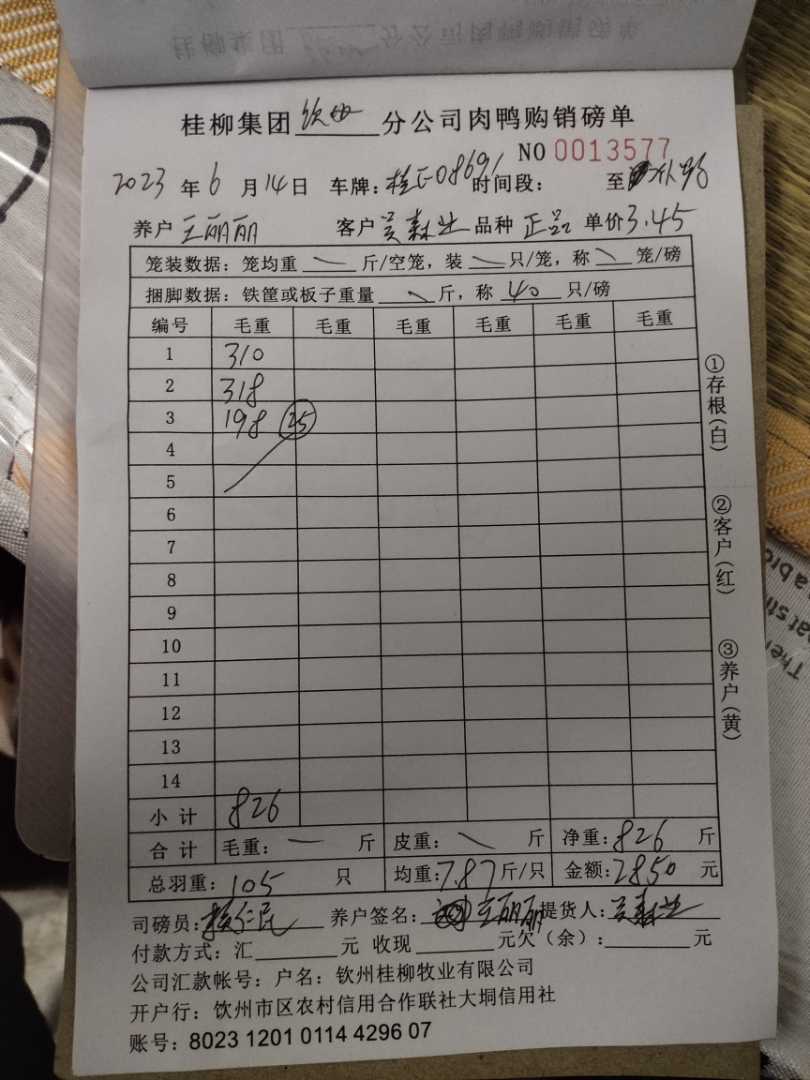 桂柳集团钦州分公司肉鸭购销磅单
NO 0013577
2023年6月14日 车牌:桂E08691时间段: 至
养户王丽丽 客户吴森 品种正品 单价3.45
笼装数据:笼均重 斤/空笼,装 只/笼,称 笼/磅
捆脚数据:铁筐或板子重量 斤,称40只/磅
编号 毛重 毛重 毛重 毛重 毛重 毛重
1 310
2 318
3 198 25
4
5
6
7
8
9
10
11
12
13
14
小计 826
合计 毛重: 斤 皮重: 斤 净重:826斤
总羽重:105只 均重:7.87斤/只 金额:2850元
司磅员: 养户签名:王丽丽 提货人:吴森
付款方式:汇 元 收现 元欠(余): 元
公司汇款帐号:户名:钦州桂柳牧业有限公司
开户行:饮州市区农村信用合作联社大垌信用社
账号:8023 1201 0114 4296 07
①存根(白)
②客户(红)
③养户(黄)